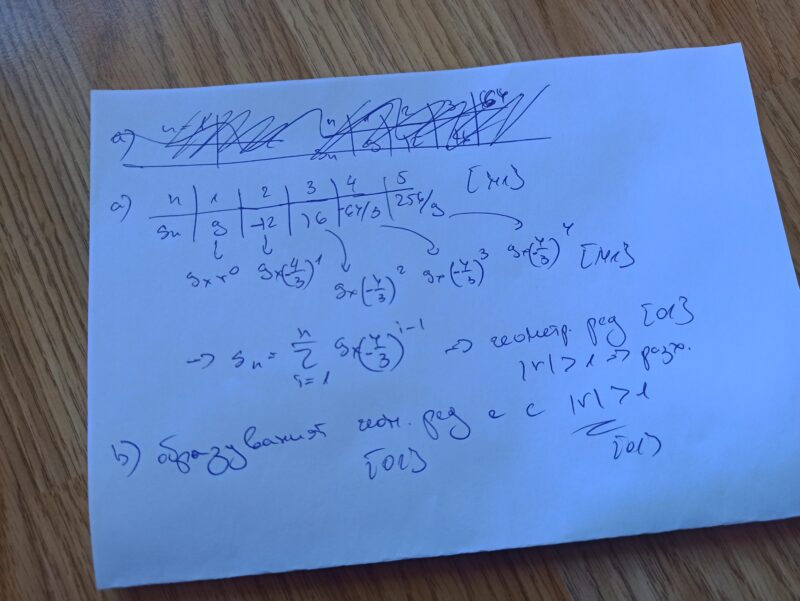 a)
a) n | 1 | 2 | 3 | 4 | 5 [M1]
Sn | 9 | -12 | 16 | -64/3 | 256/9
9×r⁰ 9×(-4/3)¹ 9×(-4/3)² 9×(-4/3)³ 9×(-4/3)⁴ [M1]
→ Sn = n Σ i=1 9×(-4/3)^(i-1) → геометр. ред [O1]
|r| > 1 → разх.
b) образуваният геом. ред е с |r| > 1
[O1] [O1]